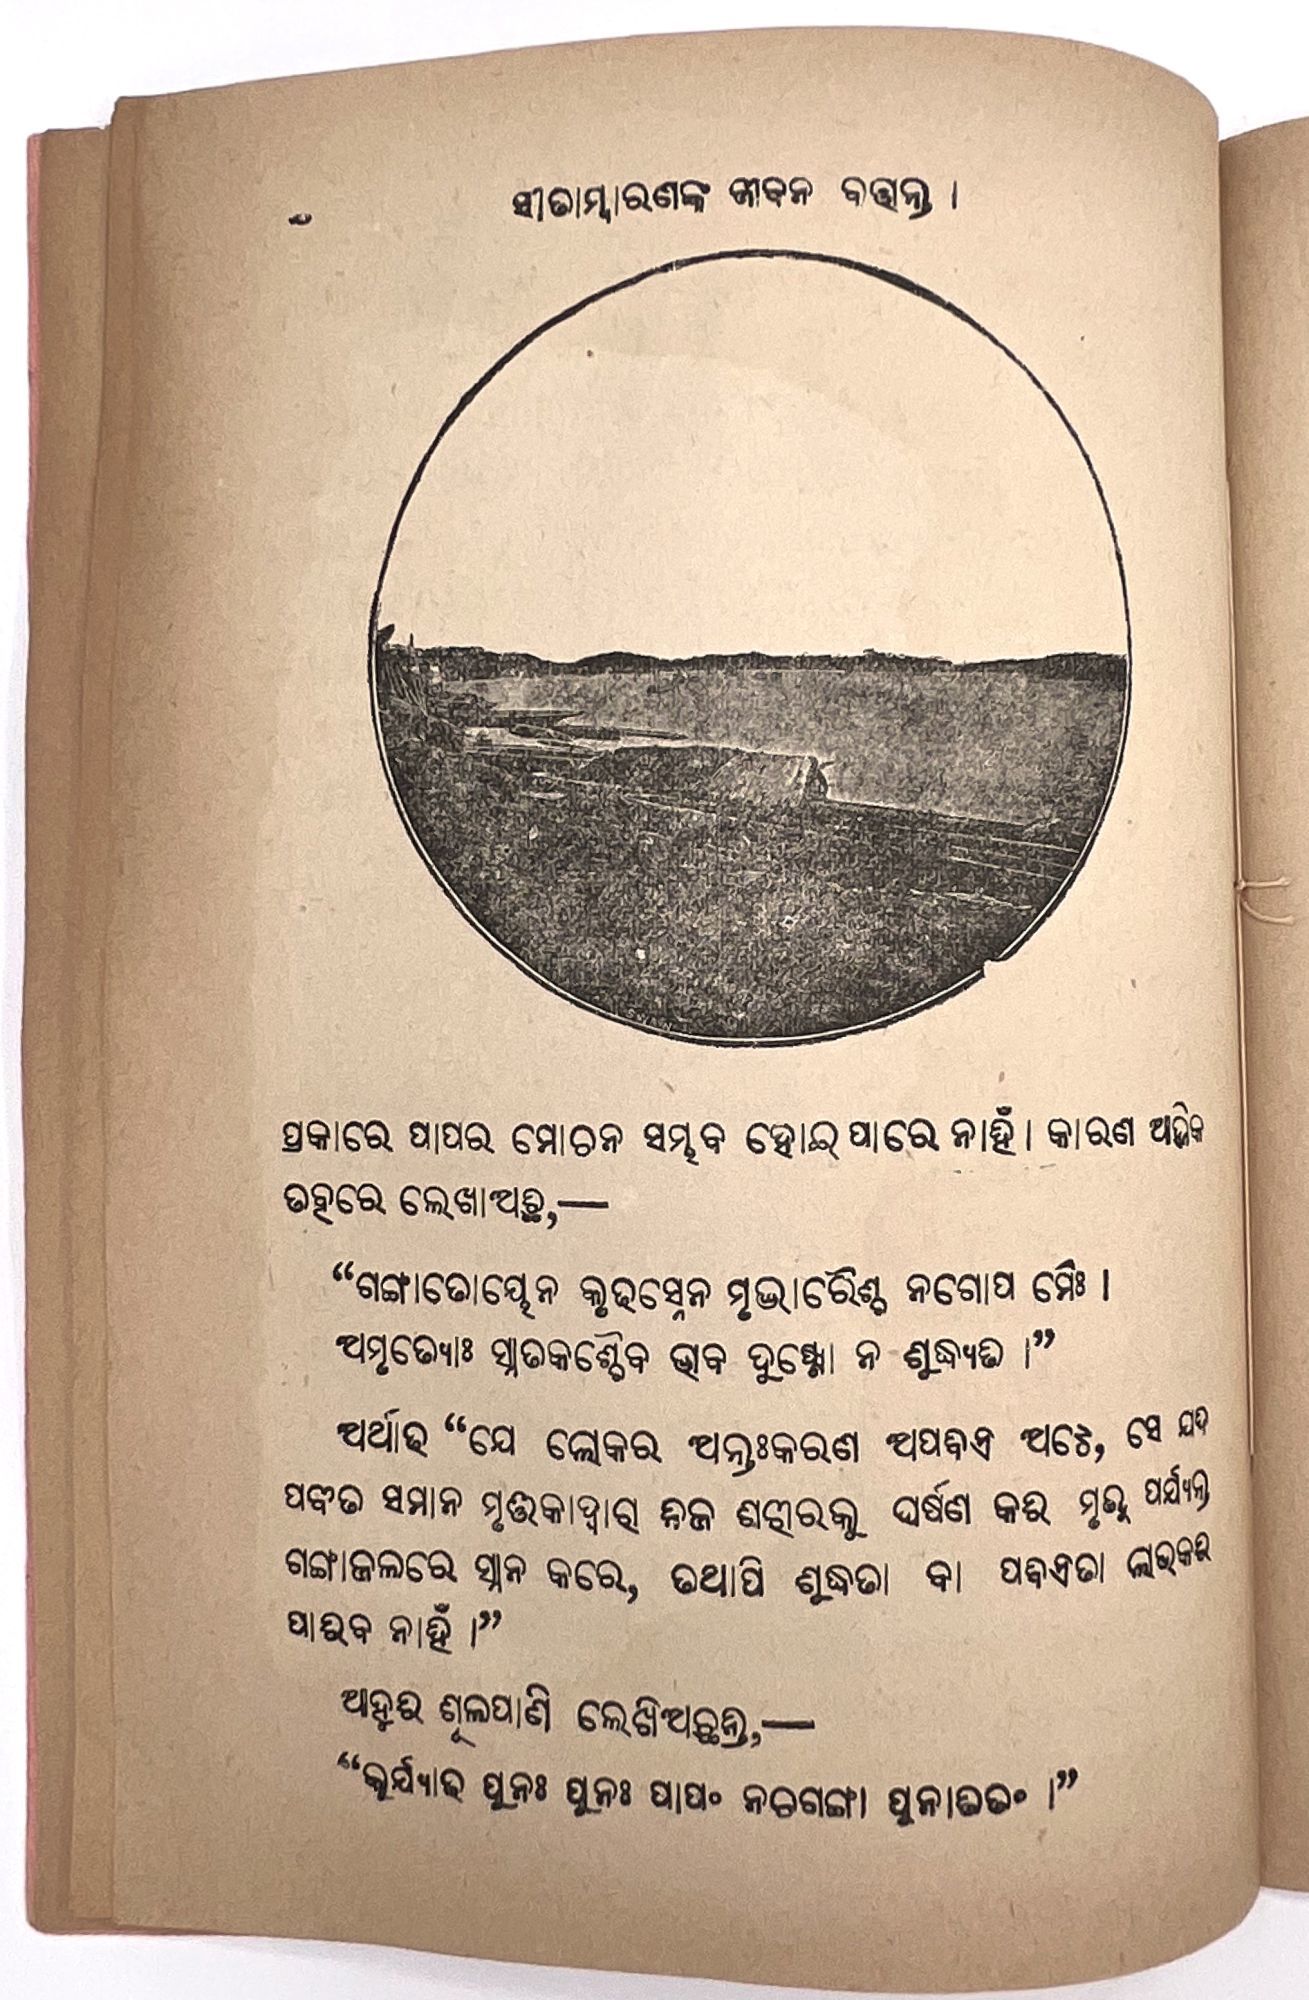 ସୀତାମ୍ବାରଣଙ୍କ ଜୀବନ ବତ୍ତାନ୍ତ ।
SWAIN
ପ୍ରକାରେ ପାପର ମୋଚନ ସମ୍ଭବ ହୋଇ ପାରେ ନାହିଁ । କାରଣ
ତହିରେ ଲେଖାଅଛି,—
“ଗଙ୍ଗାତୋୟେନ କୃତ୍ସ୍ନେନ ମୃଦ୍ଭାରୈଶ୍ଚ ନଗୋପମୈଃ ।
ଅମୃତ୍ୟୋଃ ସ୍ନାତକଶ୍ଚୈବ ଭାବ ଦୁଷ୍ଟୋ ନ ଶୁଦ୍ଧ୍ୟତି ।”
ଅର୍ଥାତ୍ “ଯେ ଲୋକର ଅନ୍ତଃକରଣ ଅପବିତ୍ର ଅଟେ, ସେ ଯଦି
ପର୍ବତ ସମାନ ମୃତ୍ତିକାଦ୍ୱାରା ନିଜ ଶରୀରକୁ ଘର୍ଷଣ କରି ମୃତ୍ୟୁ ପର୍ଯ୍ୟନ୍ତ
ଗଙ୍ଗାଜଳରେ ସ୍ନାନ କରେ, ତଥାପି ଶୁଦ୍ଧତା ବା ପବିତ୍ରତା ଲାଭକରି
ପାରିବ ନାହିଁ ।”
ଆହୁରି ଶୂଳପାଣି ଲେଖିଅଛନ୍ତି,—
“କୁର୍ଯ୍ୟାତ୍ ପୁନଃ ପୁନଃ ପାପଂ ନଚଗଙ୍ଗା ପୁନାତିତଂ ।”